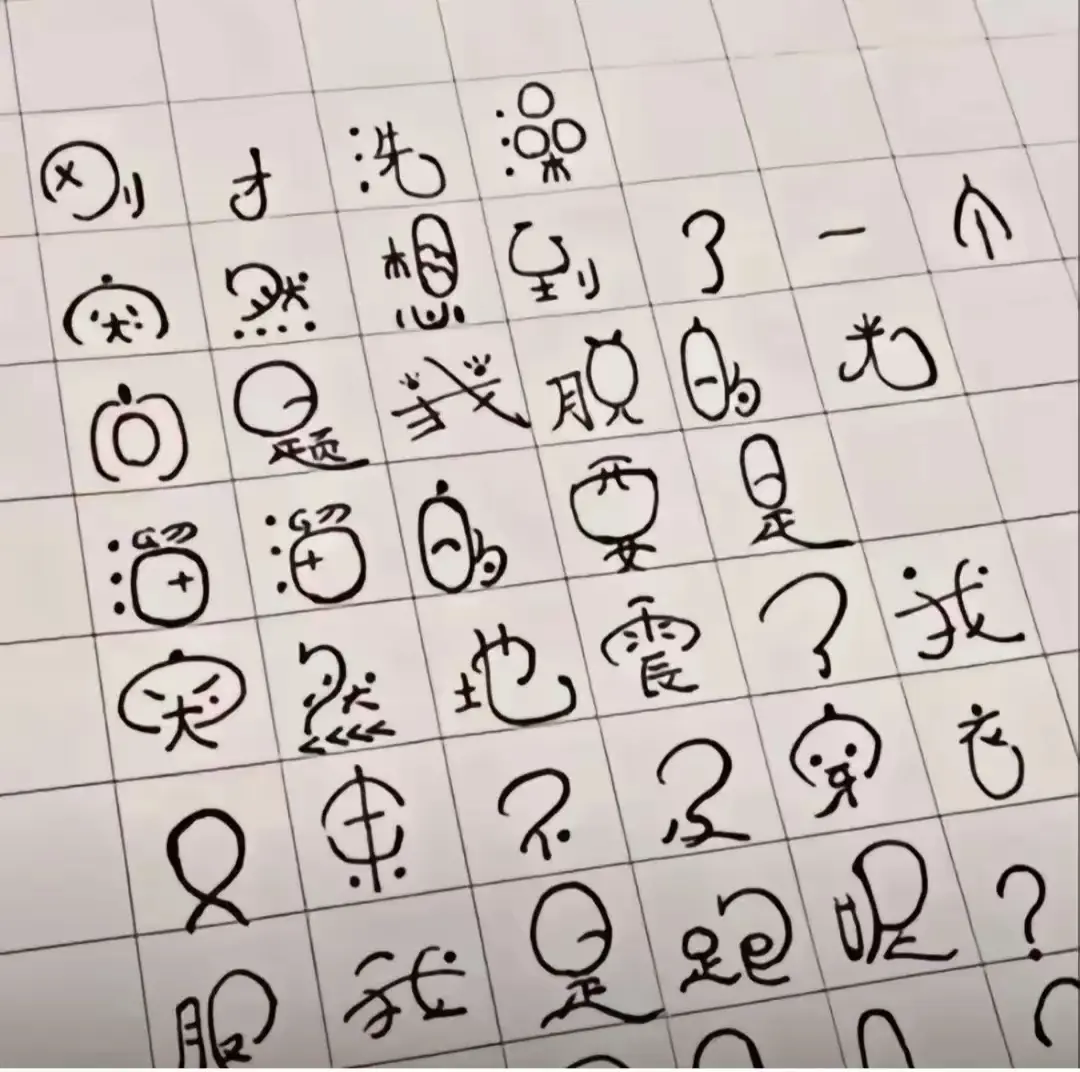 刚才洗澡
突然想到了一个
问题我脱的光
溜溜的要是
突然地震了我
又来不及穿衣
服我是跑呢?